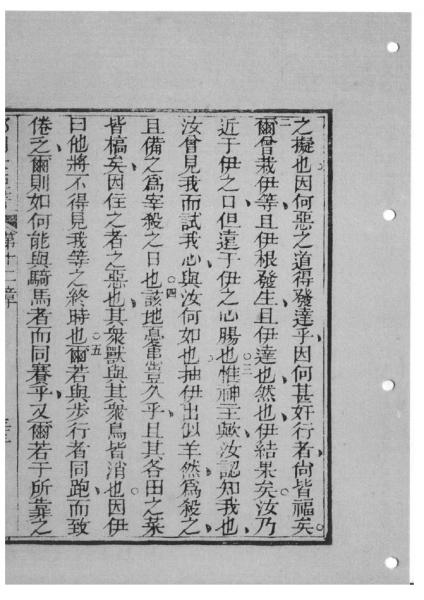 之擬也因何惡之道得發達乎因何甚奸行者尙皆福矣。
二爾曾栽伊等且伊根發生且伊達也然也伊結果矣汝乃
近于伊之口但遠于伊之心腸也。三惟神主歟汝認知我也
汝曾見我而試我心與汝何如也抽伊出似羊然爲殺之
且備之爲宰殺之日也。四該地憂患豈久乎且其各田之菜
皆槁矣因住之者之惡也其衆獸與其衆鳥皆消也因伊
曰他將不得見我等之終時也。五爾若與步行者同跑而致
倦乏爾則如何能與騎馬者而同賽乎又爾若于所靠之
第十二章